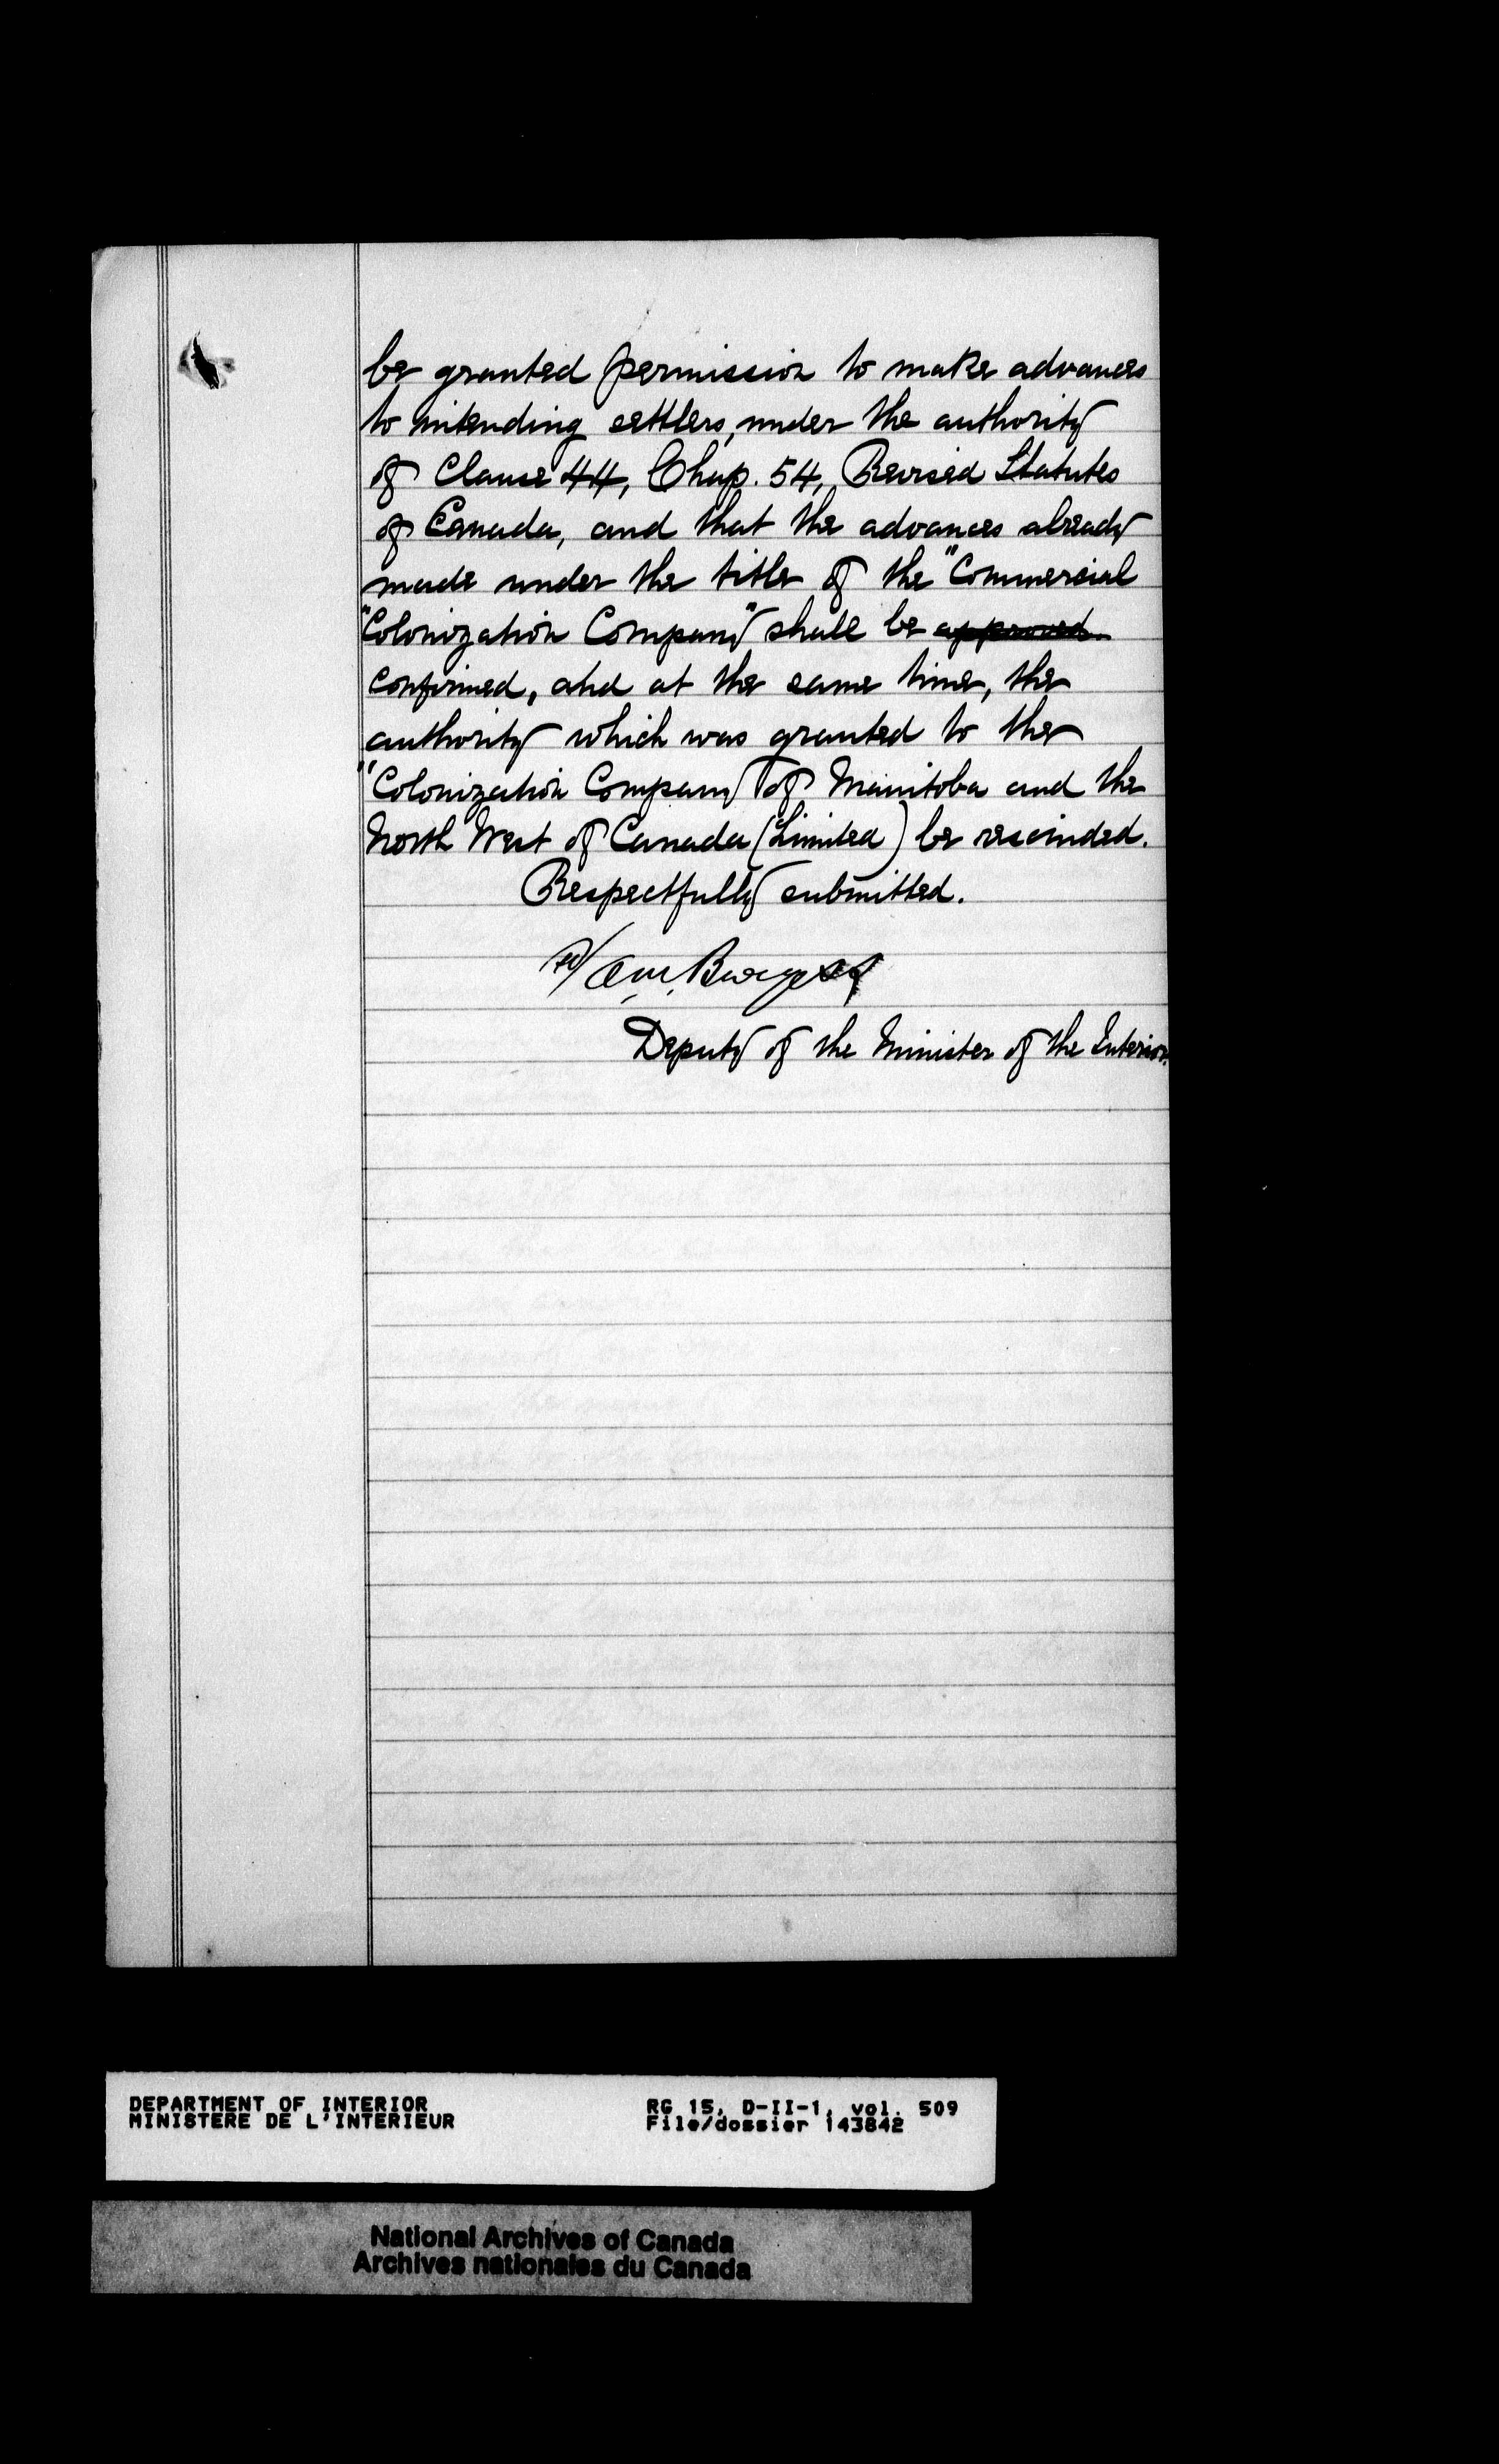 be granted permission to make advances
to intending settlers, under the authority
of Clause 44, Chap. 54, Revised Statutes
of Canada, and that the advances already
made under the title of the "Commercial
"Colonization Company" shall be approved
confirmed, and at the same time, the
authority which was granted to the
"Colonization Company of Manitoba and the
North West of Canada (Limited) be rescinded.
Respectfully submitted.
A. M. Burgess
Deputy of the Minister of the Interior.
DEPARTMENT OF INTERIOR
MINISTERE DE L'INTERIEUR
RG 15, D-II-1, vol. 509
File/dossier 143842
National Archives of Canada
Archives nationales du Canada